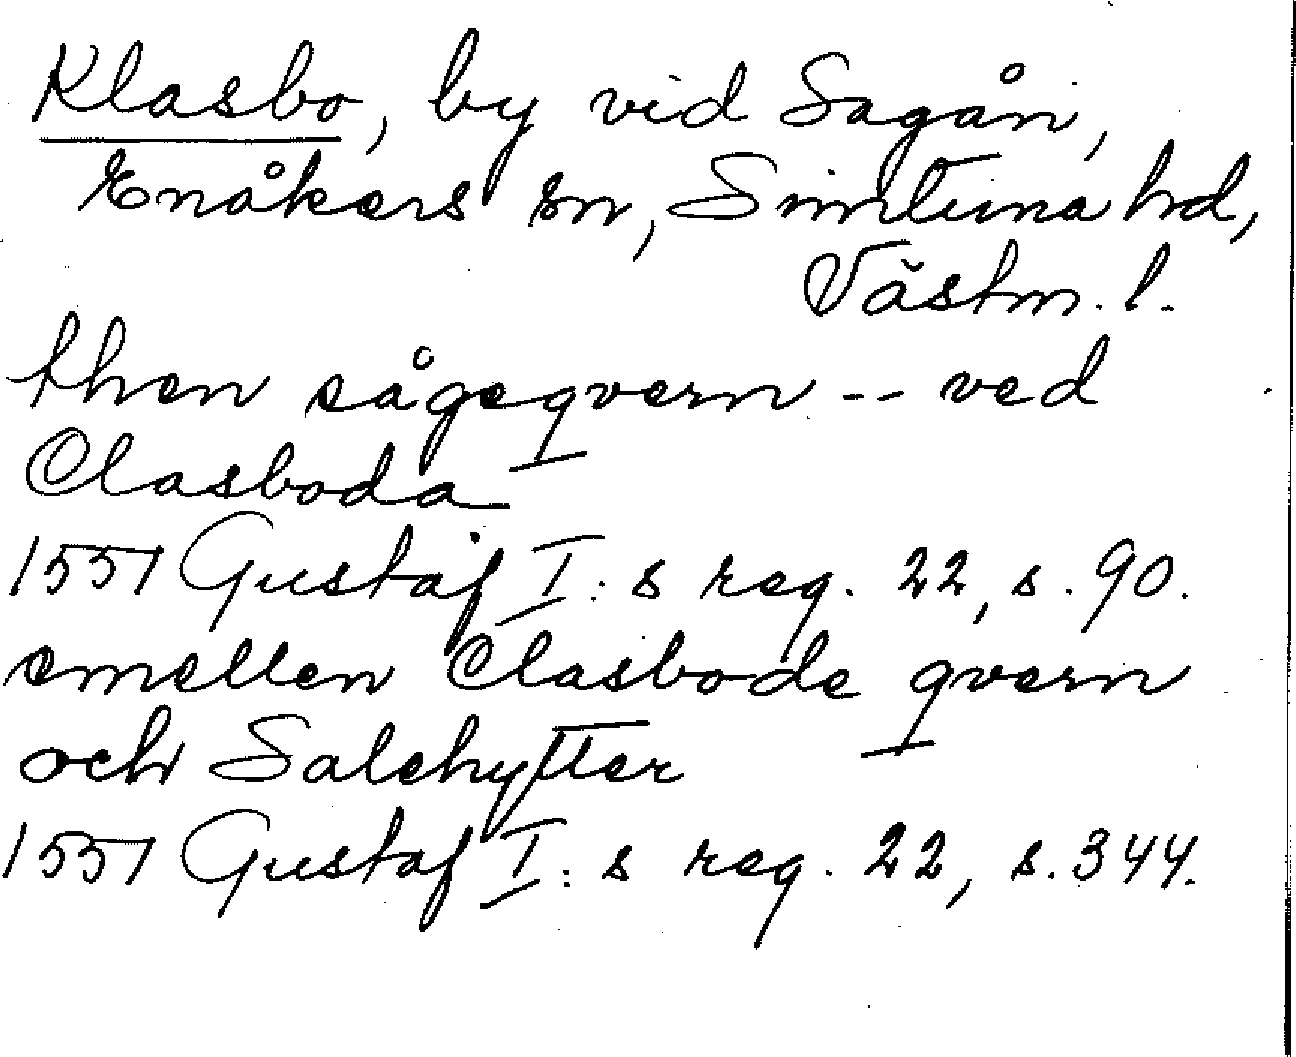 Klasbo, by vid Sagån,
Enåkers sn, Simtuna hd,
Västm. l.
then sågeqvern -- ved
Clasboda
1551 Gustaf I:s reg. 22, s. 90.
emellen Clasbode qvern
och Salehytter
1551 Gustaf I:s reg. 22, s. 344.